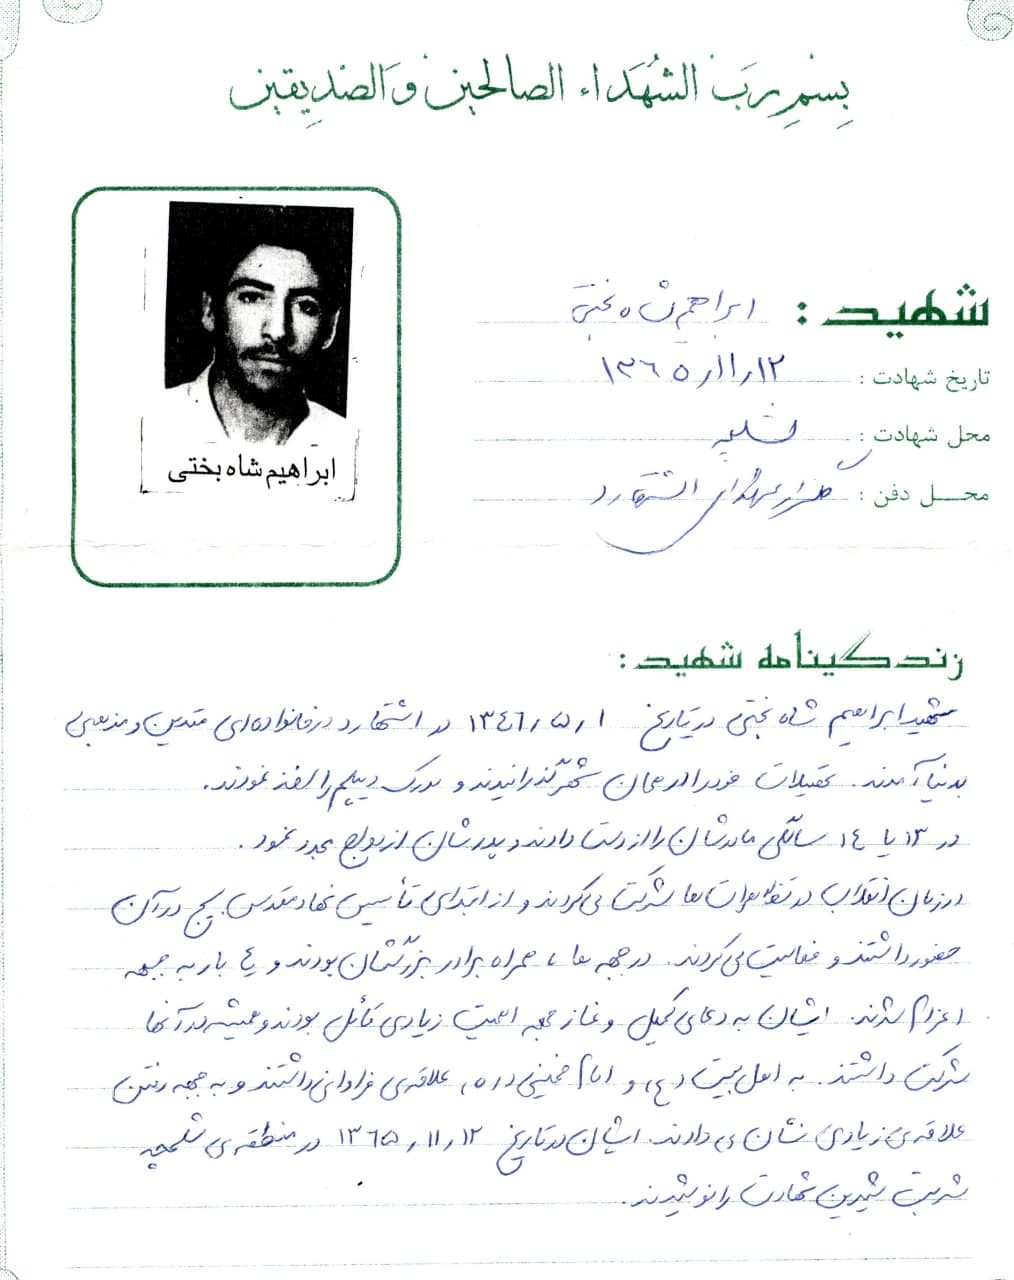 بِسْمِ رَبّ الشُهَداء الصالحین وَالصّدِیقین
شهید : ابراهیم شاه بختی
تاریخ شهادت : ۱۳۶۵/۱۱/۱۲
محل شهادت : شلمچه
محل دفن : گلزار شهدای اشتهارد
ابراهیم شاه بختی
زندگینامه شهید:
شهید ابراهیم شاه بختی در تاریخ ۱۳۴۶/۵/۱ در اشتهارد در خانواده‌ای متدین و مذهبی
بدنیا آمدند. تحصیلات خود را در همان شهر گذرانیدند و مدرک دیپلم را اخذ نمودند.
در ۱۳ یا ۱۴ سالگی مادرشان را از دست دادند و پدرشان ازدواج مجدد نمود.
در زمان انقلاب در تظاهرات ها شرکت می‌کردند و از ابتدای تأسیس نهاد مقدس بسیج در آن
حضور داشتند و فعالیت می‌کردند. در جبهه ها، همراه برادر بزرگشان بودند و ۴ بار به جبهه
اعزام شدند. ایشان به دعای کمیل و نماز جمعه اهمیت زیادی قائل بودند و همیشه در آنها
شرکت داشتند. به اهل بیت (ع) و امام خمینی (ره) علاقه‌ی فراوانی داشتند و به جبهه رفتن
علاقه‌ی زیادی نشان می دادند. ایشان در تاریخ ۱۳۶۵/۱۱/۱۲ در منطقه‌ی شلمچه
شربت شیرین شهادت را نوشیدند.